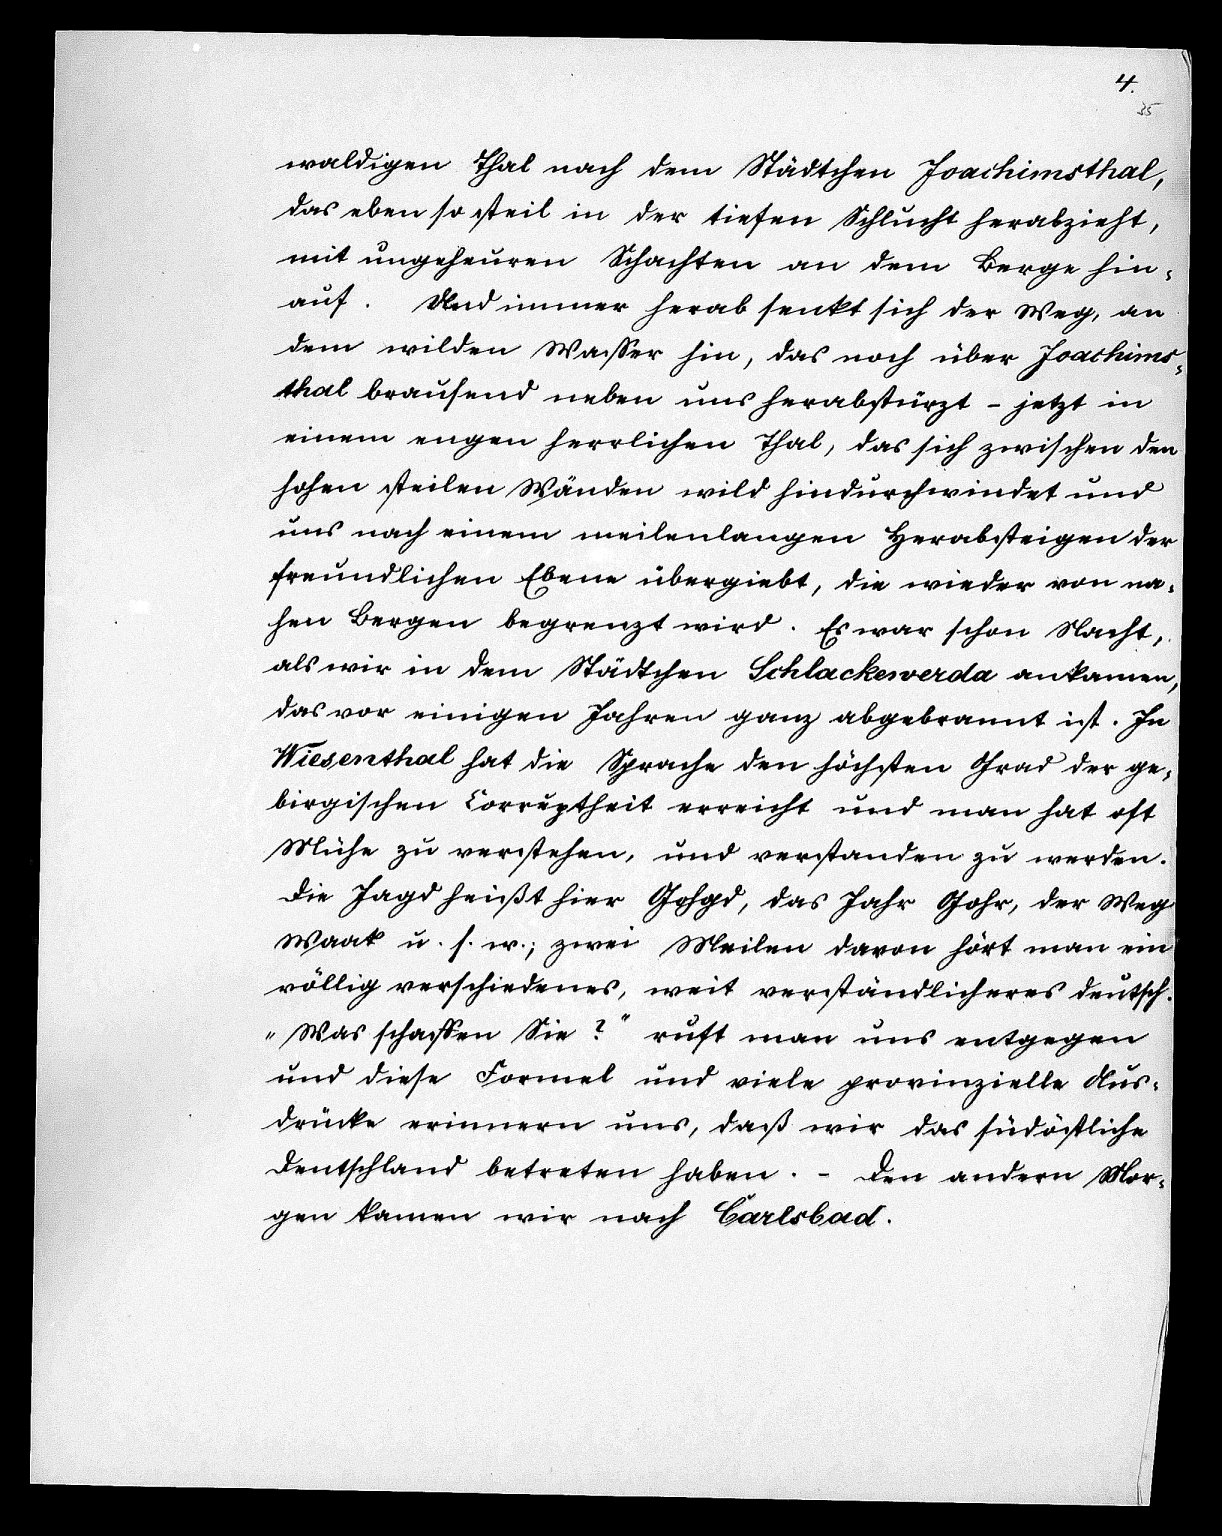 4.
35
waldigen Thal nach dem Städtchen Joachimsthal,
das eben so steil in der tiefen Schlucht herabzieht,
mit ungeheuren Schachten an dem Berge hin-
auf. Und immer herab senkt sich der Weg, an
dem wilden Wasser hin, das noch über Joachims-
thal brausend neben uns herabstürzt – jetzt in
einem engen herrlichen Thal, das sich zwischen den
hohen steilen Wänden wild hindurchwindet und
uns nach einem meilenlangen Herabsteigen der
freundlichen Ebene übergiebt, die wieder von na-
hen Bergen begrenzt wird. Es war schon Nacht,
als wir in dem Städtchen Schlackewerda ankamen,
das vor einigen Jahren ganz abgebrannt ist. In
Wiesenthal hat die Sprache den höchsten Grad der ge-
birgischen Corruptheit erreicht und man hat oft
Mühe zu verstehen, und verstanden zu werden.
Die Jagd heißt hier Gohgd, das Jahr Gohr, der Weg
Waak u. s. w.; zwei Meilen davon hört man ein
völlig verschiedenes, weit verständlicheres deutsch.
„Was schaffen Sie?" ruft man uns entgegen
und diese Formel und viele provinzielle Aus-
drücke erinnern uns, daß wir das südöstliche
Deutschland betreten haben. – Den andern Mor-
gen kamen wir nach Carlsbad.